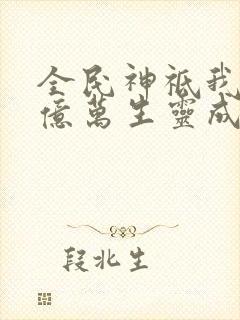 全民神祇我
億萬生靈成
段北生